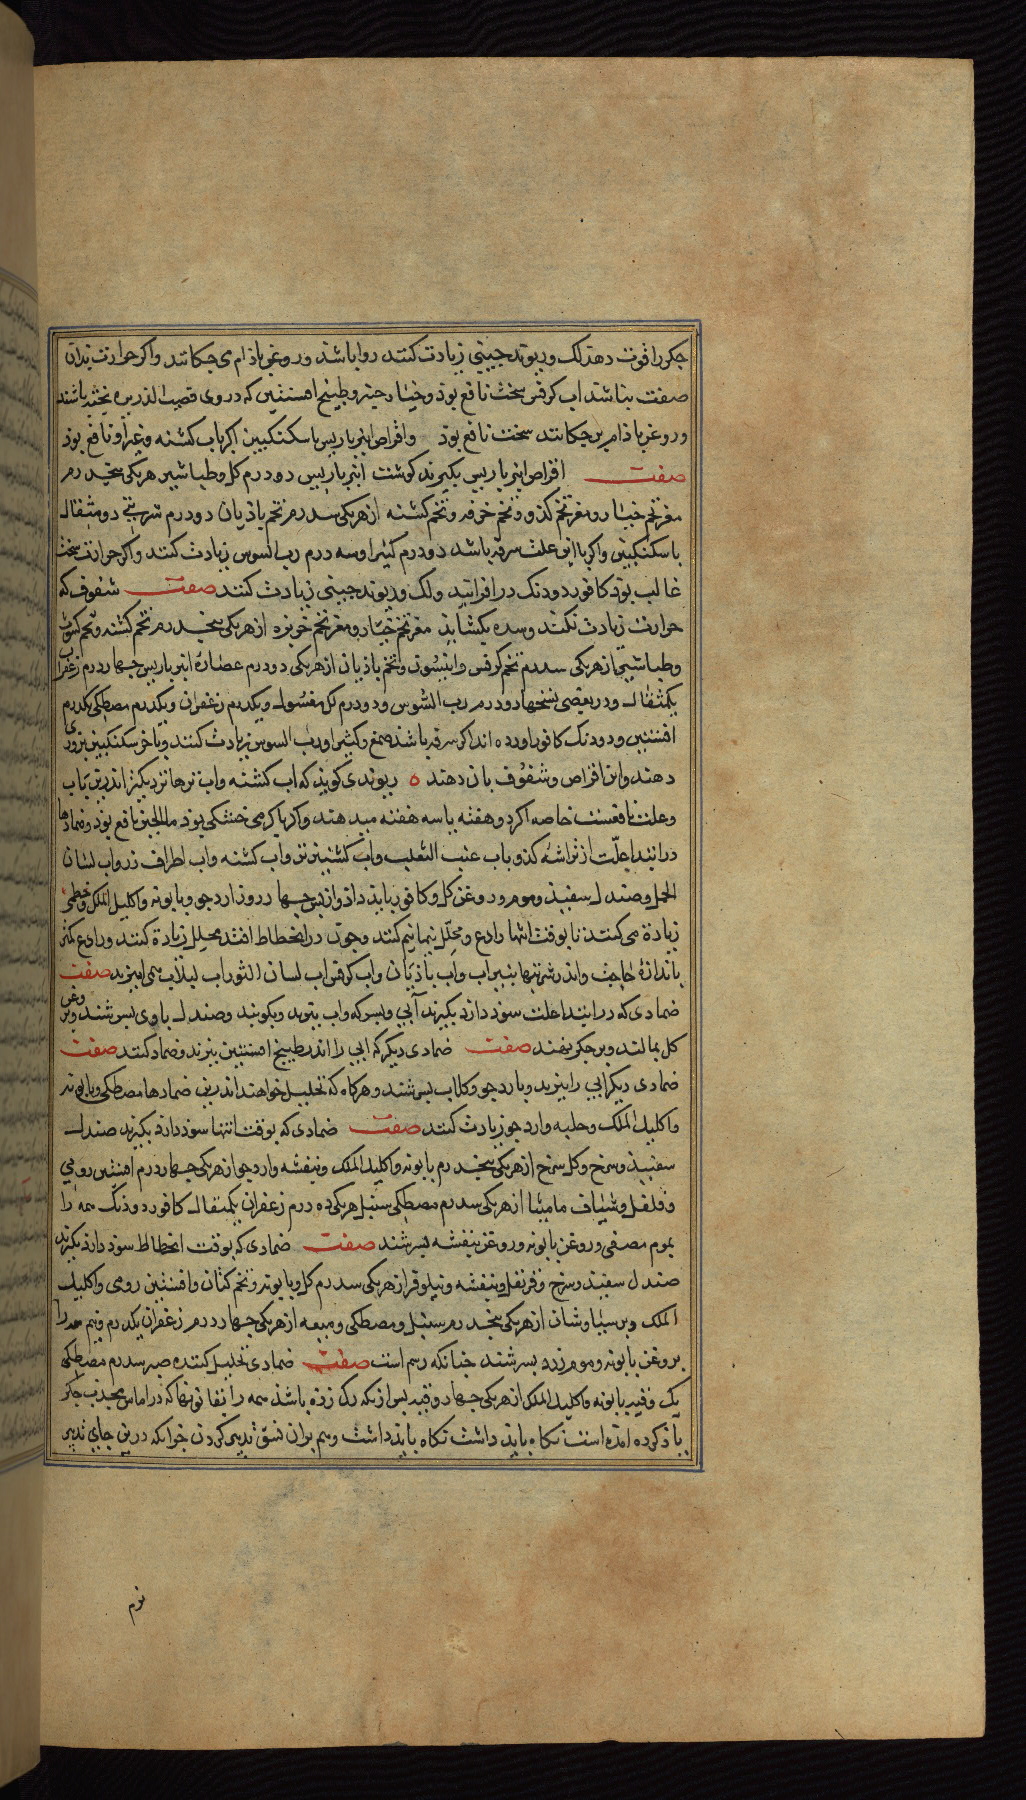 جکر را قوت دهد لک و ریوند جیینی زیادت کنند روا باشد و روغن باذام می جکانند و اکر حرارت بدان
صفت نباشد اب کرفس سخت نافع بوذ و خیار و طبیخ افسنتین که در وی قصب الذریره بخته باشند
و روغن باذام بر جکانند سخت نافع بوذ واقراص انبرباریس با سکنکبین اکر باب کشنه و غیر او نافع بوذ
صفت اقراص انبرباریس بکیرند کوشت انبرباریس دو درم کل و طباشیر هریکی بنجدرم
مغز تخم خیار و مغز تخم کذو و تخم خرفه و تخم کشنه از هریکی سدرم تخم باذیان دو درم شربتی دو مثقال
با سکنکبین واکر با این علت سرفه باشد دو درم کثیرا و سه درم رب السوس زیادت کنند واکر حرارت سخت
غالب بوذ کافور دو دنک در افزایند ولک و ریوند جینی زیادت کنند صفت سفوف که
حرارت زیادت نکند و سده بکشاید مغز تخم خیار و مغز تخم خربزه از هریکی بنجدرم تخم کشنه و تخم کشوث
و طباشیر از هریکی سدرم تخم کرفس و انیسون و تخم باذیان از هریکی دو درم عصارۀ انبرباریس جهاردرم زعفران
یکمثقال و در بعضی نسخها دو درم رب السوس و دو درم لک مغسول و یکدرم زعفران و یکدرم مصطکی یکدرم
افسنتین و دو دنک کافور اورده اند اکر سرفه باشذ صمغ و کثیرا و رب السوس زیادت کنند و باخر سکنکبین بزوری
دهند و این اقراص و سفوف بان دهند ه ریوندی کوید که اب کشنه و اب ترها نزدیک من اندرین باب
وعلت نافعست خاصه اکر دو هفته یا سه هفته میدهند واکر با کرمی خشکی بوذ ماالجبن نافع بوذ و ضمادها
در ابتداء علت از تراشه کذو و باب عنب الثعلب و اب کشنیز تر و اب کشنه و اب اطراف رز و اب لسان
الحمل و صندل سفیذ و موم و روغن کل و کافور بایذ داذ و از بس جهار روز ارد جو و بابونه و اکلیل الملک و خطمی
زیادة می کنند تا بوقت انتها رادع و محلل نیمانیم کنند و جون در انحطاط افتد محلل زیادة کنند و رادع کمتر
باندازۀ حاجت و اندر شربتها بنیراب و اب باذیان و اب کرفس اب لسان الثور اب لبلاب همی امیزند صفت
ضمادی که در ابتداء علت سوذ دارد بکیرند آبی و بسرکه و اب ببزند و بکوبند و صندل باوی بسرشند و بروغن
کل بمالند و بر جکر نهند صفت ضمادی دیکر که ابی را اندر طبیخ افسنتین ببزند و ضماد کنند صفت
ضمادی دیکر ابی را ببزند و بارد جو و کلاب بسرشند و هرکاه که تحلیل خواهند اندرین ضمادها مصطکی و بابونه
و اکلیل الملک و حلبه و ارد جو زیادت کنند صفت ضمادی که بوقت انتها سوذ دارد بکیرند صندل
سفیذ و سرخ و کل سرخ از هریکی بنجدرم بابونه و اکلیل الملک و بنفشه و ارد جو از هریکی جهاردرم افسنتین رومی
و فلفل و شیاف مامیثا از هریکی سدرم مصطکی سنبل هریکی ده درم زعفران یکمثقال کافور دو دنک همه را
بموم مصفی و روغن بابونه و روغن بنفشه بسرشند صفت ضمادی که بوقت انحطاط سوذ دارد بکیرند
صندل سفیذ و سرخ و قرنفل و بنفشه و نیلوفر از هریکی سدرم کل و بابونه و تخم کتان و افسنتین رومی و اکلیل
الملک و برسیاوشان از هریکی بنجدرم سنبل و مصطکی و میعه از هریکی جهاردرم زعفران یکدرم ونیم همه را
بروغن بابونه و موم زرد بسرشند جنانکه رسم است صفت ضمادی تحلیل کننده صبر سدرم مصطکی
یک وقیه بابونه و اکلیل الملک از هریکی جهار وقیه بس ازنکه رک زده باشذ همه را بقانونها که در اماس محدب جکر
یاذ کرده امده است نکاه بایذ داشت نکاه بایذ داشت وهم بران نسق تدبیر کردن جز انکه درین جای تدبیر
نرم